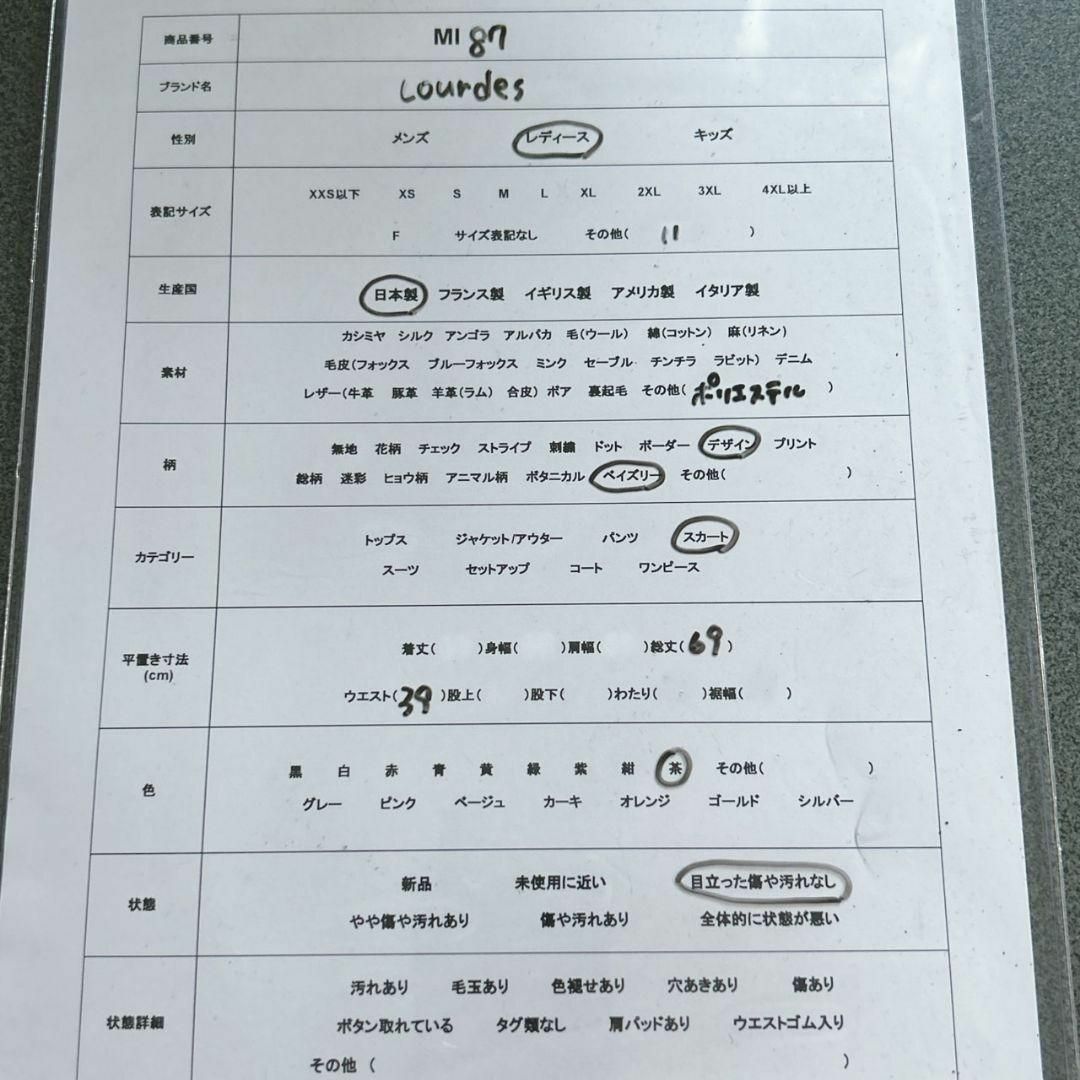 商品番号 MI 87
ブランド名 Lourdes
性別 メンズ レディース キッズ
表記サイズ
XXS以下 XS S M L XL 2XL 3XL 4XL以上
F サイズ表記なし その他( 11 )
生産国 日本製 フランス製 イギリス製 アメリカ製 イタリア製
素材
カシミヤ シルク アンゴラ アルパカ 毛(ウール) 綿(コットン) 麻(リネン)
毛皮(フォックス ブルーフォックス ミンク セーブル チンチラ ラビット) デニム
レザー(牛革 豚革 羊革(ラム) 合皮) ボア 裏起毛 その他( ポリエステル )
柄
無地 花柄 チェック ストライプ 刺繍 ドット ボーダー デザイン プリント
総柄 迷彩 ヒョウ柄 アニマル柄 ボタニカル ペイズリー その他( )
カテゴリー
トップス ジャケット/アウター パンツ スカート
スーツ セットアップ コート ワンピース
平置き寸法
(cm)
着丈( )身幅( )肩幅( )総丈( 69 )
ウエスト( 39 )股上( )股下( )わたり( )裾幅( )
色
黒 白 赤 青 黄 緑 紫 紺 茶 その他( )
グレー ピンク ベージュ カーキ オレンジ ゴールド シルバー
状態
新品 未使用に近い 目立った傷や汚れなし
やや傷や汚れあり 傷や汚れあり 全体的に状態が悪い
状態詳細
汚れあり 毛玉あり 色褪せあり 穴あきあり 傷あり
ボタン取れている タグ類なし 肩パッドあり ウエストゴム入り
その他 ( )